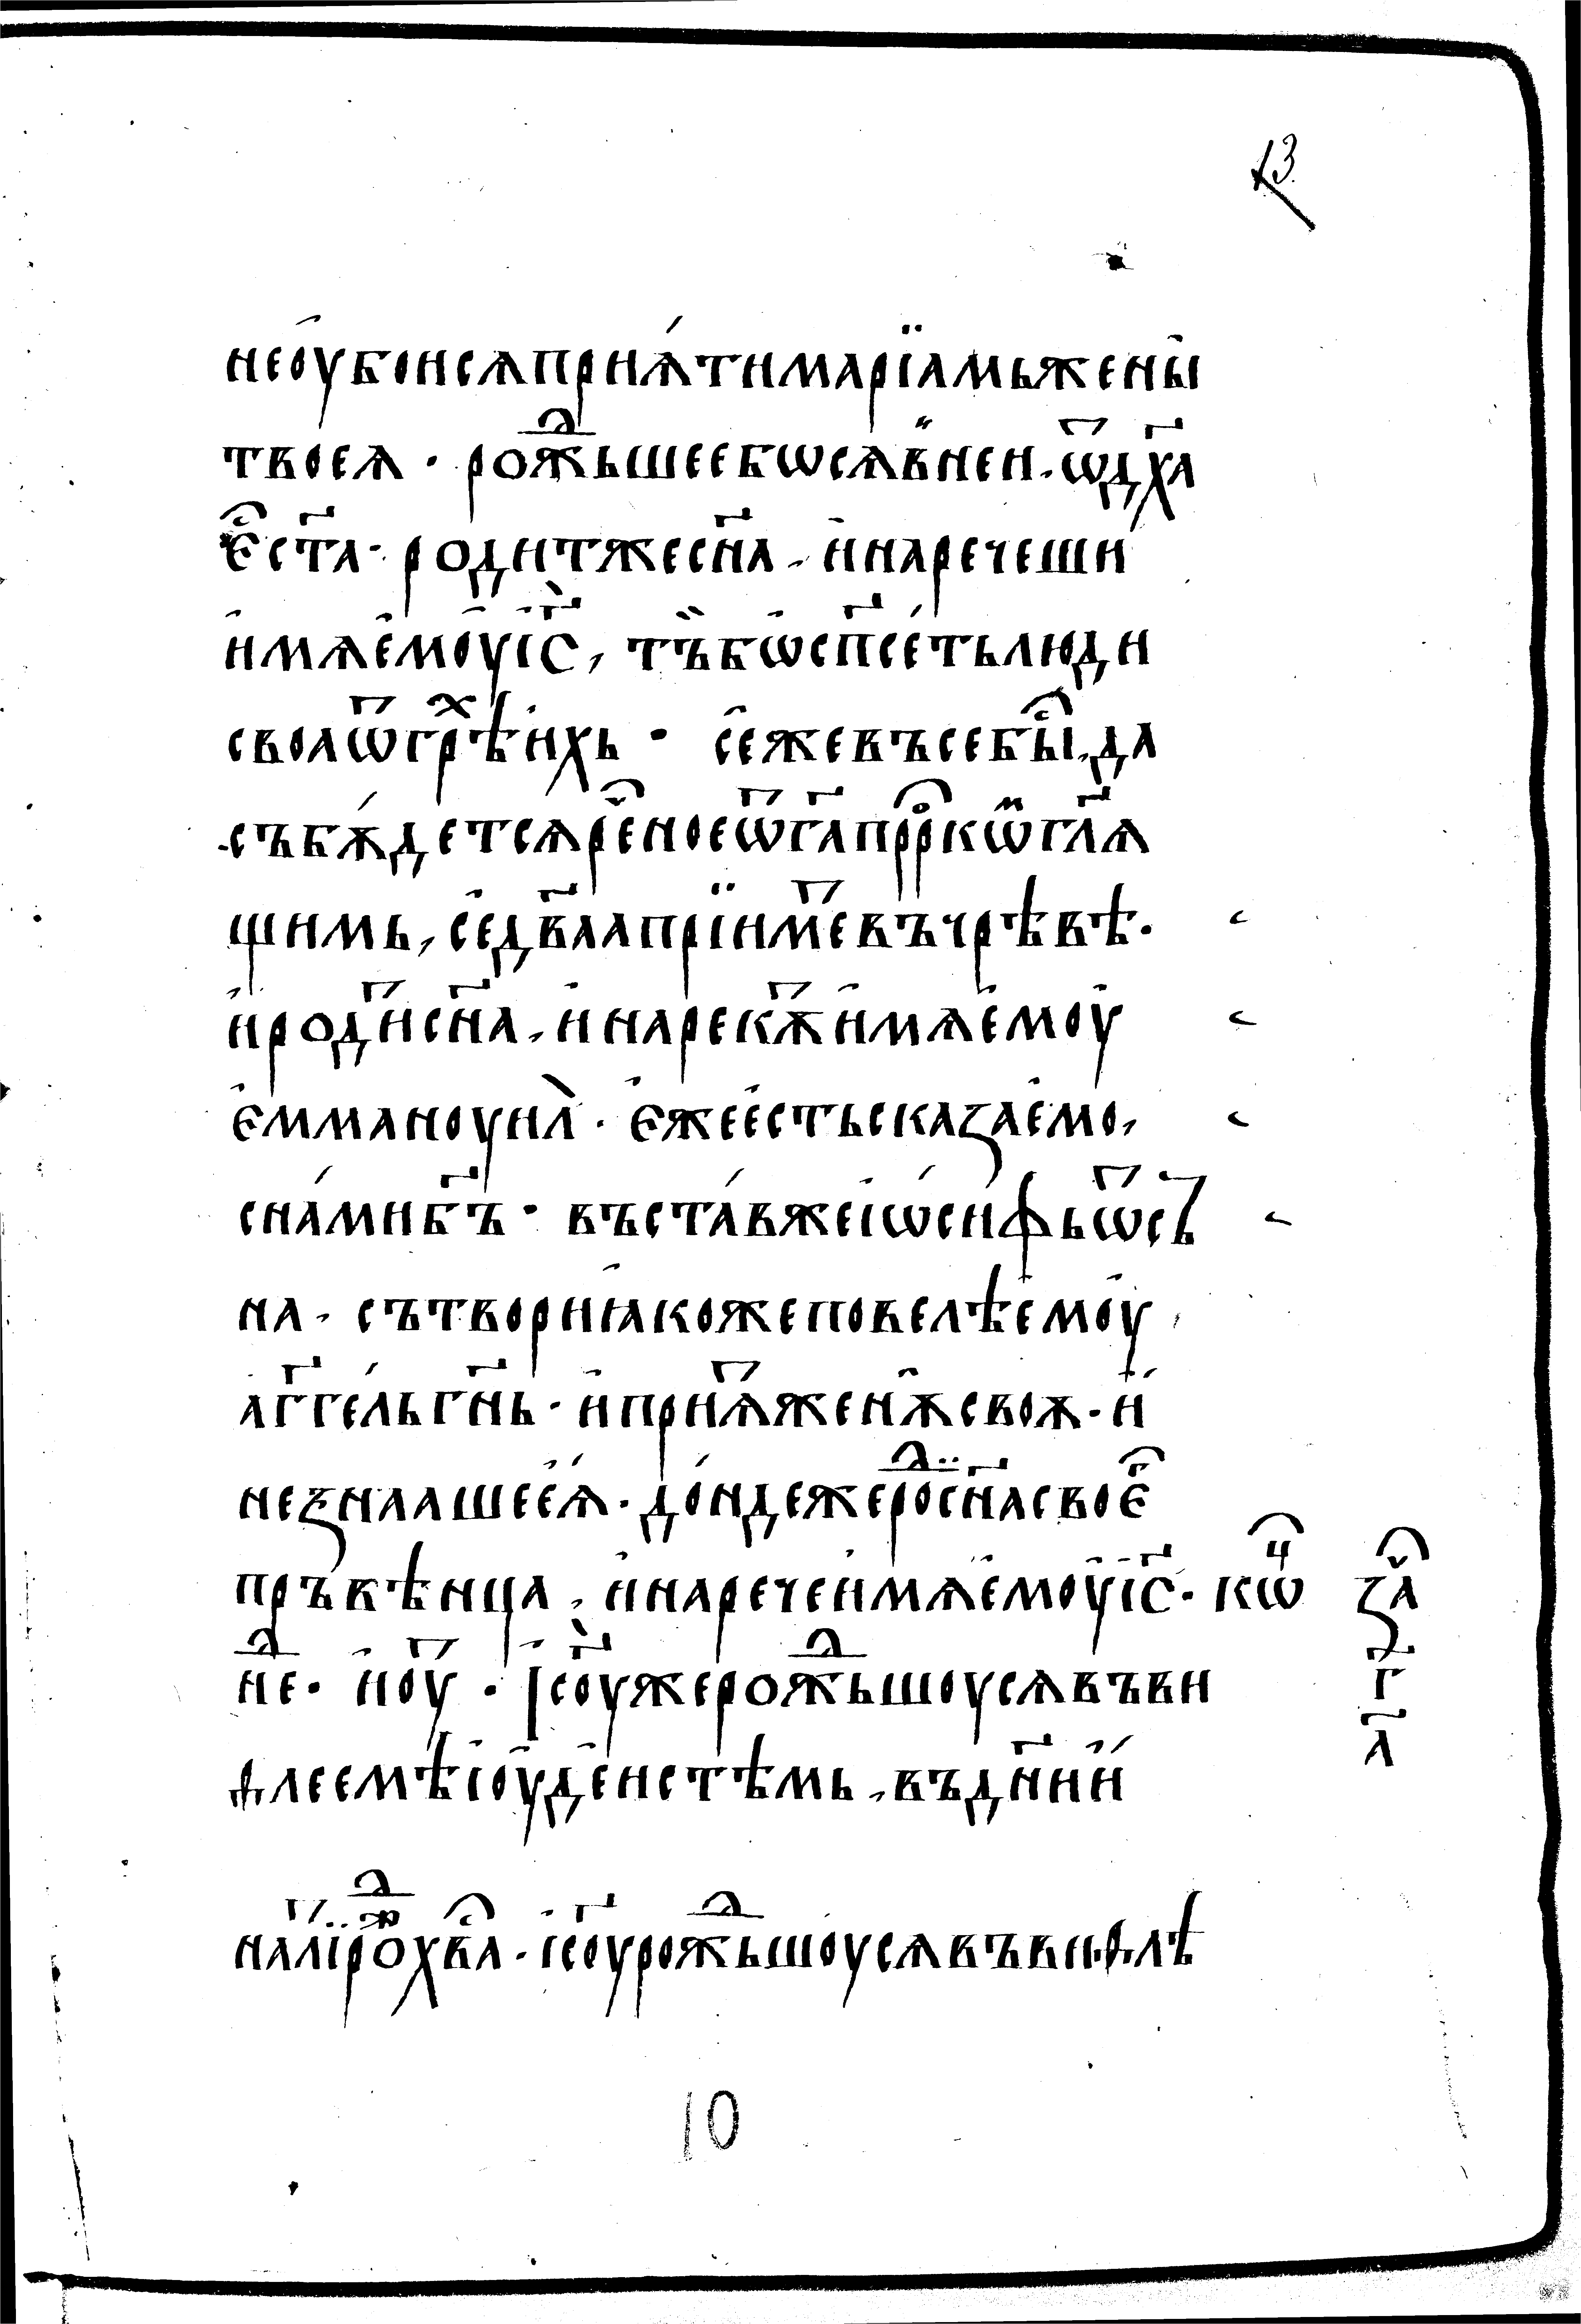 13
не оу҆бои сѧ прїѧ́ти марїамь жены̀
твоеѧ · рожⷣьшее бѡ сѧ в̾ неи · ѿ дх҃а
є҆ⷭ ст҃а · родит же сн҃а · и҆ наречеши
и҆мѧ е҆моу҆ і҆с҃ , тъ̏ бѡ҆ сп҃сеть люди
своѧ ѿ грⷯѣ и҆хь · се҆ же въсе быⷭ҇ · да
събѫ́детсѧ реⷱ҇ное ѿ г҃а прⷪ҇ркѡⷨ гл҃ѧ
щимь , се҆ дв҃аа прїимеⷮ въ чрѣвѣ ·
и҆ родиⷮ сн҃а · и҆ нарекѫⷮ и҆мѧ е҆моу҆
є҆ммануил̀ · є҆же е҆сть сказае҆мо ,
с на́ми б҃ъ · въста́в же і҆ѡ҆сифь ѿ съ
на · сътвори ꙗ҆коже повелѣ е҆моу҆
а҆гг҃ель гн҃ь · и҆ приѧⷮ женѫ̀ своѫ · и҆
не знааше е҆ѧ̀ · до́ндеже роⷣ сн҃а своеⷢ҇
пръвѣнца · и҆ нарече и҆мѧ е҆моу҆ і҆с҃ · кѡⷰ҇
неⷣ · и҆ оу҆ⷮ · Іс҃оу же рожⷣьшоу сѧ въ ви
ѳлеемѣ і҆оу҆де҆истѣмь · въ дн҃и и҆́
заⷱ҇
г҃
л҃
на лїⷮ рожⷣ хв҃а · і҆с҃оу рожⷣьшоу҆ сѧ въ виѳлѣ
10